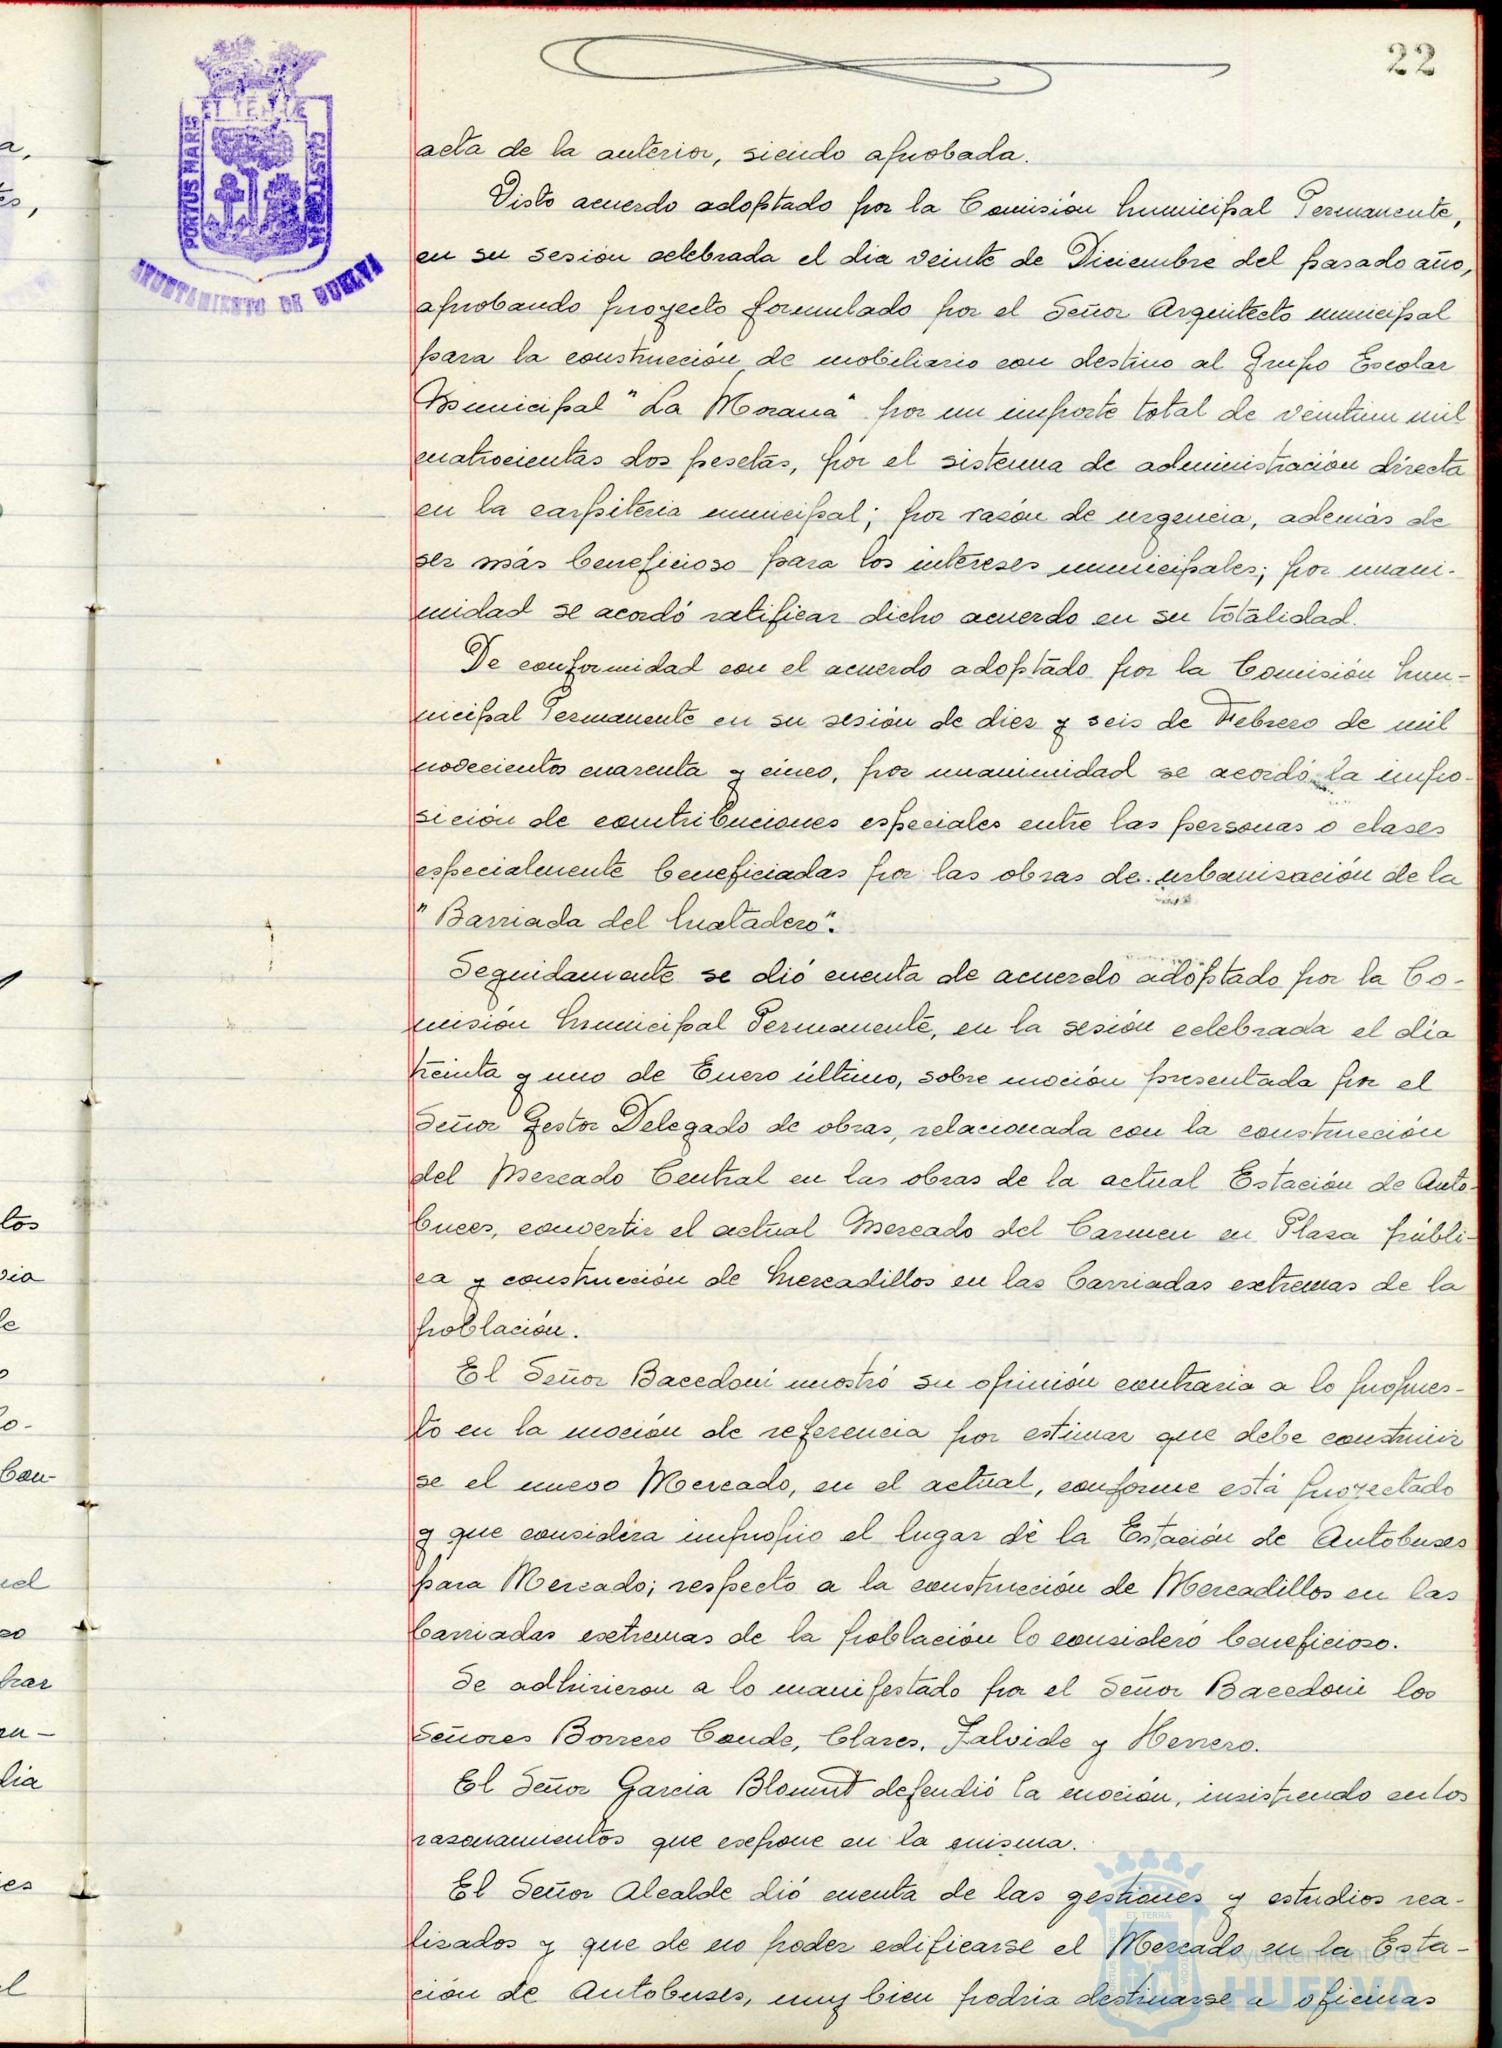 22
ET TERRÆ
PORTUS MARIS
CUSTODIA
AYUNTAMIENTO DE HUELVA
acta de la anterior, siendo aprobada.
Visto acuerdo adoptado por la Comisión Municipal Permanente,
en su sesión celebrada el dia veinte de Diciembre del pasado año,
aprobando proyecto formulado por el Señor Arquitecto municipal
para la construcción de mobiliario con destino al Grupo Escolar
Municipal "La Morana" por un importe total de veintiun mil
cuatrocientas dos pesetas, por el sistema de administración directa
en la carpiteria municipal; por razón de urgencia, además de
ser más beneficioso para los intereses municipales; por unani-
midad se acordó ratificar dicho acuerdo en su totalidad.
De conformidad con el acuerdo adoptado por la Comisión Mu-
nicipal Permanente en su sesión de diez y seis de Febrero de mil
novecientos cuarenta y cinco, por unanimidad se acordó la impo-
sición de contribuciones especiales entre las personas o clases
especialmente beneficiadas por las obras de urbanisación de la
"Barriada del Matadero".
Seguidamente se dió cuenta de acuerdo adoptado por la Co-
misión Municipal Permanente, en la sesión celebrada el día
treinta y uno de Enero último, sobre moción presentada por el
Señor Gestor Delegado de obras, relacionada con la construcción
del Mercado Central en las obras de la actual Estación de Auto-
buces, convertir el actual Mercado del Carmen en Plaza públi-
ca y construcción de Mercadillos en las barriadas extremas de la
población.
El Señor Bacedoni mostró su opinión contraria a lo propues-
to en la moción de referencia por estimar que debe construir
se el nuevo Mercado, en el actual, conforme está proyectado
y que considera impropio el lugar de la Estación de Autobuses
para Mercado; respecto a la construcción de Mercadillos en las
barriadas extremas de la población lo consideró beneficioso.
Se adhirieron a lo manifestado por el Señor Bacedoni los
Señores Borrero Conde, Clares, Zalvide y Herrero.
El Señor Garcia Blount defendió la moción, insistiendo en los
razonamientos que expone en la misma.
El Señor Alcalde dió cuenta de las gestiones y estudios rea-
lizados y que de no poder edificarse el Mercado en la Esta-
ción de Autobuses, muy bien podria destinarse a oficinas
Ayuntamiento de
HUELVA